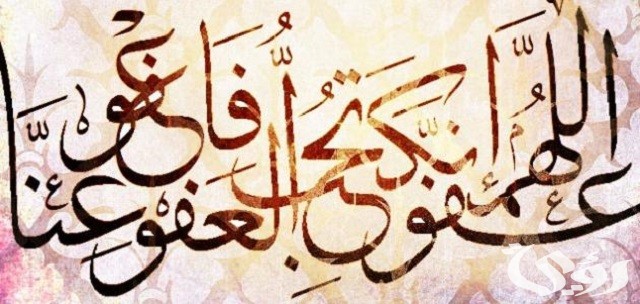 اللَّهُمَّ إنَّكَ عفو تحب العفو فاعف عنَّا
رؤى